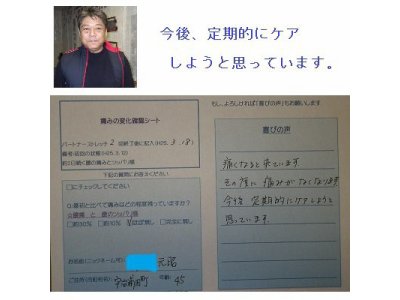 今後、定期的にケア
しようと思っています。
痛みの変化確認シート
パートナーストレッチ 2 回終了後に記入(H25. 3. 18)
下記の質問にお答えください
□にチェックしてください
Q.最初と比べて痛みはどの程度残っていますか?
お名前(ニックネーム可)
元浩
ご住所(市町村名)
年齢 45
もし、よろしければ「喜びの声」もお願いします
喜びの声
痛くなると来ています
その度に痛みがなくなります
今後 定期的にケアしようと
思っています.